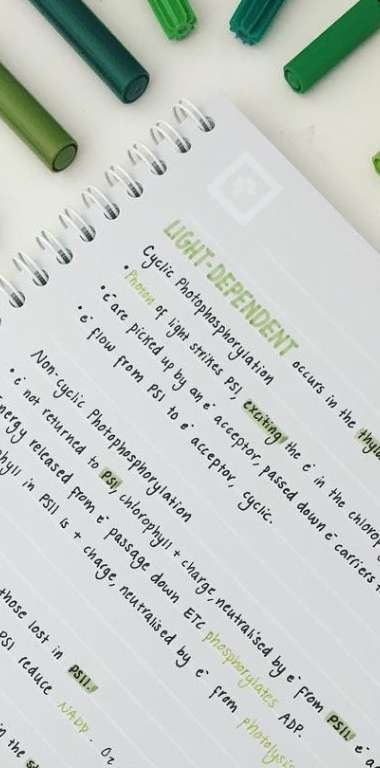 LIGHT-DEPENDENT occurs in the
Cyclic Photophosphorylation
• Photons of light strikes PSI, exciting the e⁻ in the
• e⁻ are picked up by an e⁻ acceptor, passed down e⁻ carriers
• e⁻ flow from PSI to e⁻ acceptor, cyclic.
Non-cyclic Photophosphorylation
• e⁻ not returned to PSI, chlorophyll + charge, neutralised by e⁻ from PSII.
energy released from e⁻ passage down ETC phosphorylates ADP.
in PSII is + charge, neutralised by e⁻ from photolysis
those lost in PSII.
PSI reduce NADP. O₂
in the